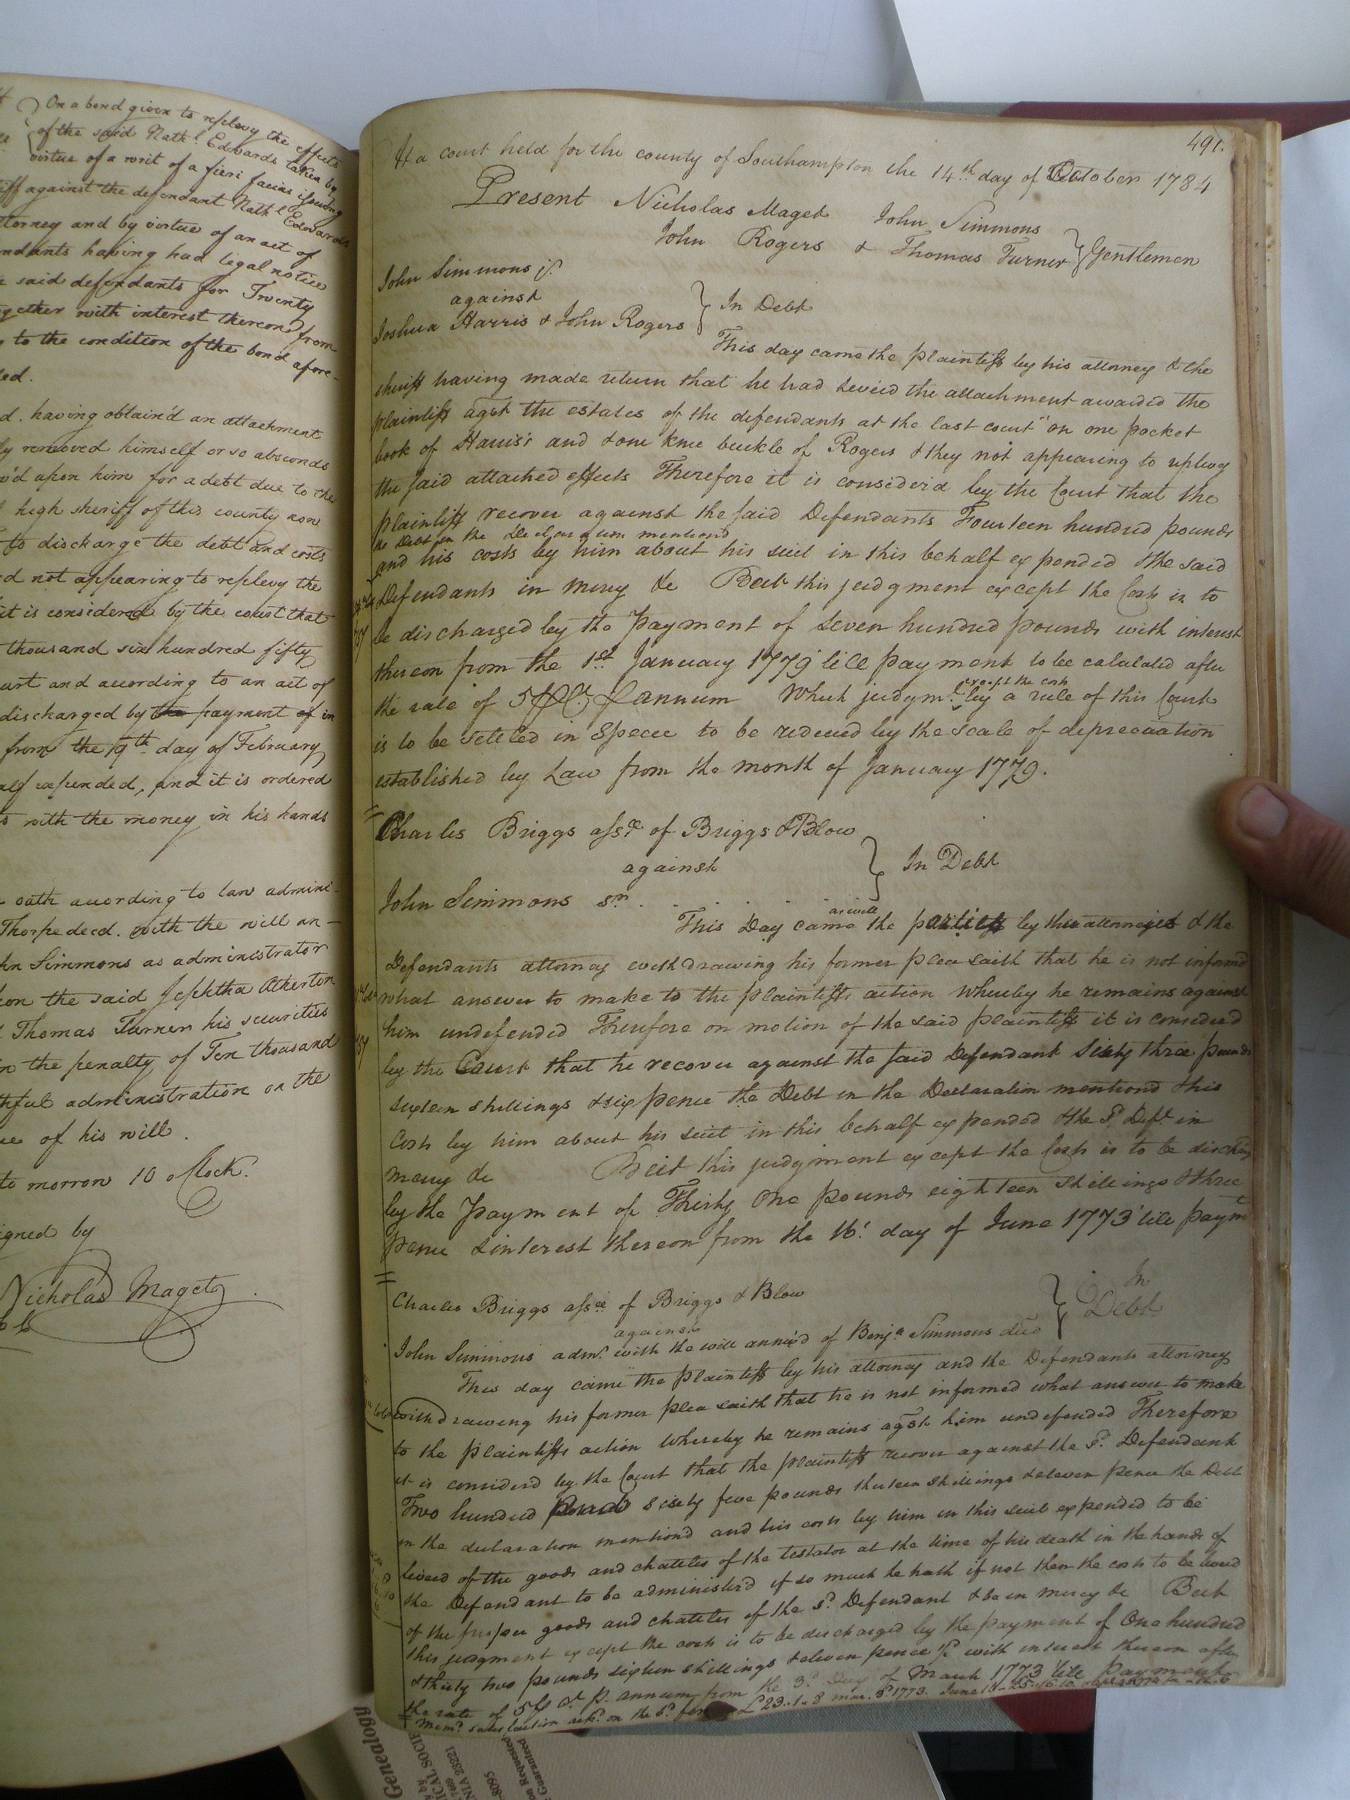 On a bond given to replevy the effects
of the said Nathl. Edwards taken by
virtue of a writ of a fieri facias issuing
against the defendant Nathl Edwards
attorney and by virtue of an act of
having had legal notice
said defendants for Twenty
together with interest thereon from
to the condition of the bond afore-
having obtain'd an attachment
removed himself or so absconds
upon him for a debt due to the
high sheriff of this county now
to discharge the debt and costs
not appearing to replevy the
it is considered by the court that
thousand six hundred fifty
and according to an act of
discharged by the payment of in
from the 19th day of February
expended, and it is ordered
with the money in his hands
oath according to law admini-
Thorpe decd. with the will an-
Simmons as administrator
the said Jephtha Atherton
Thomas Turner his securities
in the penalty of Ten thousand
administration on the
of his will.
to morrow 10 oClock.
signed by
Nicholas Maget
491.
At a court held for the county of Southampton the 14th day of October 1784
Present Nicholas Maget John Simmons
John Rogers & Thomas Turner Gentlemen
John Simmons jr.
against
In Debt
Joshua Harris & John Rogers
This day came the plaintiff by his attorney & the
sheriff having made return that he had levied the attachment awarded the
plaintiff agst the estates of the defendants at the last court "on one pocket
book of Harris's and one knee buckle of Rogers & they not appearing to replevy
the said attached effects Therefore it is considerd by the Court that the
plaintiff recover against the said Defendants Fourteen hundred pounds
the Debt in the Declaration mentiond
and his costs by him about his suit in this behalf expended & the said
Defendants in mercy &c But this judgment except the Costs is to
be discharged by the Payment of seven hundred pounds with interest
thereon from the 1st January 1779 till payment to be calulated after
the rate of 5 annum Which judgmt. except the costs by a rule of this Court
is to be settled in Specie to be reduced by the scale of depreciation
established by Law from the month of January 1779.
Charles Briggs assee of Briggs & Blow
against
In Debt
John Simmons sr.
This Day came as well the parties by their attornies & the
Defendants attorney withdrawing his former plea saith that he is not informd
what answer to make to the plaintiffs action Whereby he remains against
him undefended Therefore on motion of the said plaintiff it is considered
by the Court that he recover against the said Defendant Sixty three pounds
sixteen shillings & six pence the Debt in the Declaration mentiond & his
Costs by him about his suit in this behalf expended & the sd. Deft in
mercy &c But this judgment except the Costs is to be dischgd
by the Payment of Thirty One pounds eighteen shillings & three
pence & interest thereon from the 16t day of June 1773 till paymt
Charles Briggs assee of Briggs & Blow
against
In Debt
John Simmons admr. with the will annex'd of Benja Simmons decd
This day came the plaintiff by his attorney and the Defendants attorney
withdrawing his former plea saith that he is not informed what answer to make
to the plaintiffs action Whereby he remains agst him undefended Therefore
it is considerd by the Court that the plaintiff recover against the sd. Defendant
Two hundred sixty five pounds thirteen shillings & eleven pence the Debt
in the declaration mentiond and his costs by him in this suit expended to be
levied of the goods and chatels of the testator at the time of his death in the hands of
the Defendant to be administerd if so much he hath if not then the costs to be levied
of the proper goods and chatels of the sd. Defendant & be in mercy &c But
this judgment except the costs is to be discharged by the payment of One hundred
& thirty two pounds sixteen shillings & eleven pence with interest thereon after
the rate of 5 annum from the 3d. Day of March 1773 till payment